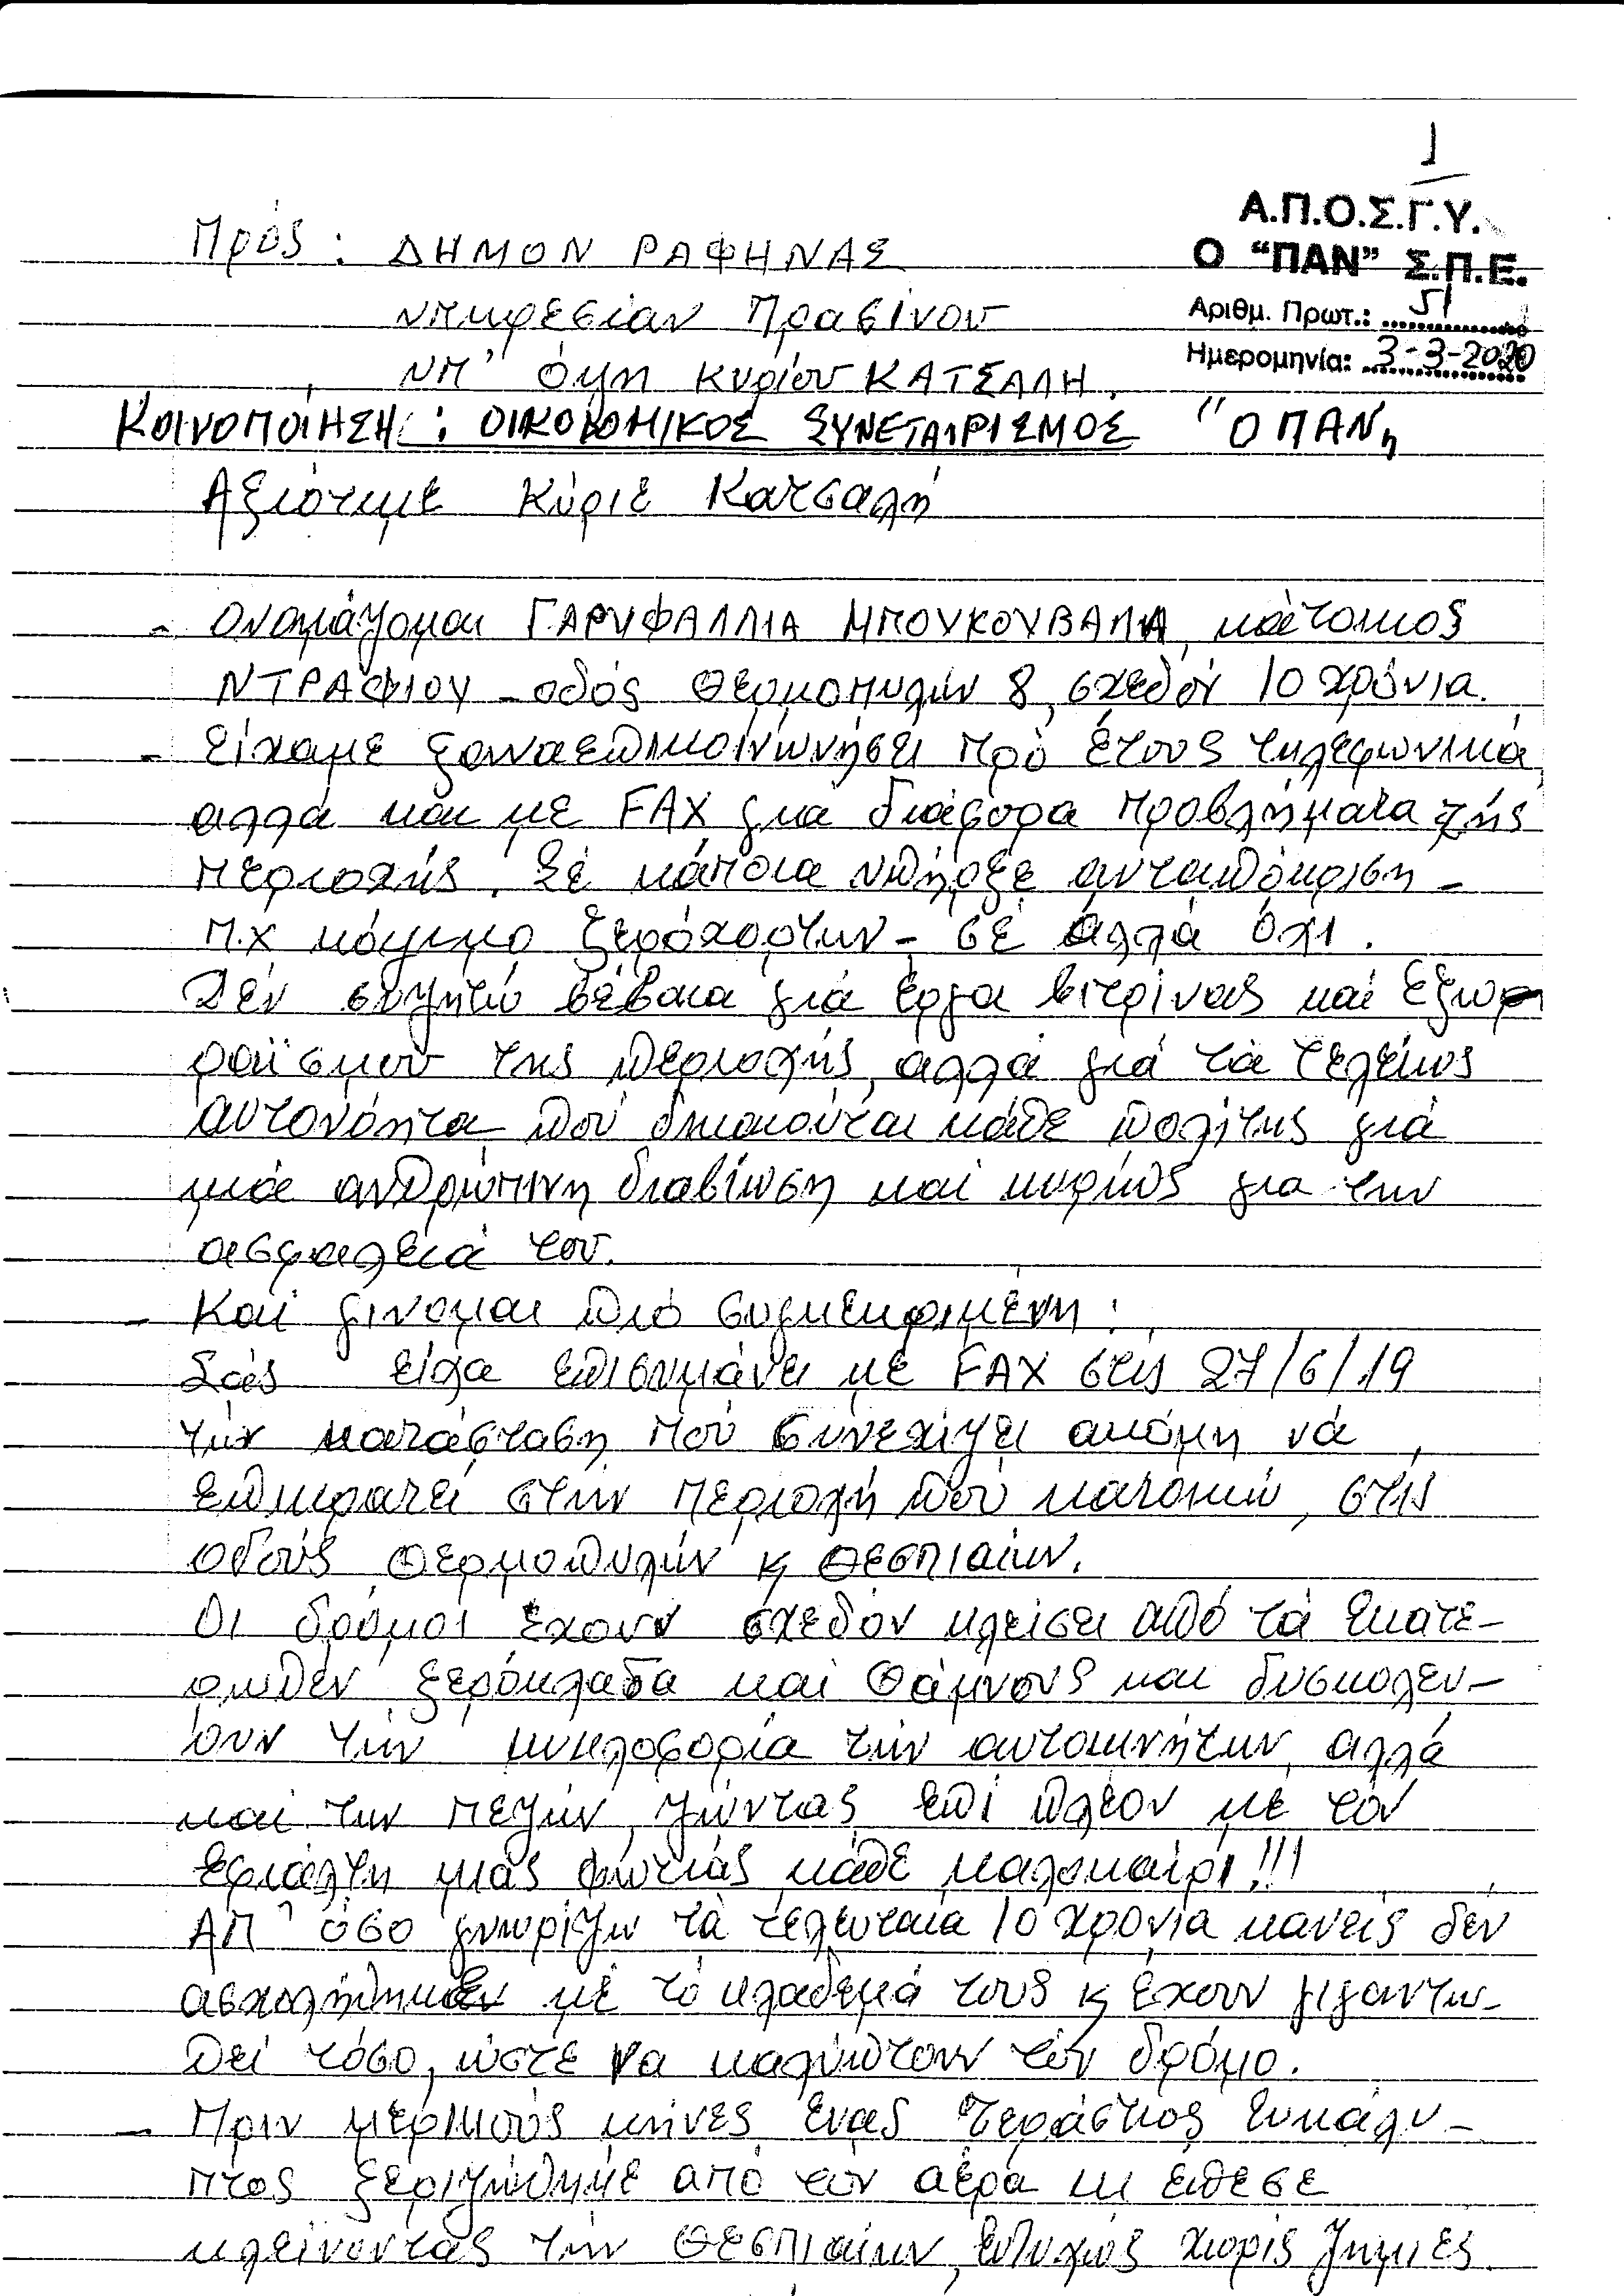 1
Α.Π.Ο.Σ.Γ.Υ.
Ο “ΠΑΝ” Σ.Π.Ε.
Αριθμ. Πρωτ.: 51
Ημερομηνία: 3-3-2020
Πρός: ΔΗΜΟΝ ΡΑΦΗΝΑΣ
Υπηρεσίαν Πρασίνου
ΥΠ' όψη Κυρίου ΚΑΤΣΑΛΗ.
ΚΟΙΝΟΠΟΙΗΣΗ: ΟΙΚΟΔΟΜΙΚΟΣ ΣΥΝΕΤΑΙΡΙΣΜΟΣ "Ο ΠΑΝ"
Αξιότιμε Κύριε Κατσαλή
- Ονομάζομαι ΓΑΡΥΦΑΛΛΙΑ ΜΠΟΥΚΟΥΒΑΛΑ, κάτοικος
ΝΤΡΑΦΙΟΥ - οδός Θερμοπυλών 8, σχεδόν 10 χρόνια.
- Είχαμε ξαναεπικοινωνήσει πρό έτους τηλεφωνικά,
αλλά και με FAX για διάφορα προβλήματα τής
περιοχής. Σέ κάποια υπήρξε ανταπόκριση -
π.χ κόψιμο ξερόχορτων - σέ άλλα όχι.
Δέν συζητώ βέβαια γιά έργα βιτρίνας καί εξωρ
ραϊσμού της περιοχής, αλλά γιά τά τελείως
αυτονόητα πού δικαιούται κάθε πολίτης γιά
μιά ανθρώπινη διαβίωση καί κυρίως για την
ασφάλειά του.
- Καί γίνομαι πιό συγκεκριμένη:
Σάς είχα επισυμάνει μέ FAX στις 27/6/19
τήν κατάσταση πού συνεχίζει ακόμη νά
επικρατεί στήν περιοχή πού κατοικώ, στίς
οδούς Θερμοπυλών κ Θεσπιαίων.
Οι δρόμοι έχουν σχεδόν κλείσει από τά εκατέ-
ρωθεν ξερόκλαδα καί θάμνους και δυσκολεύ-
ουν τήν κυκλοφορία τών αυτοκινήτων, αλλά
καί των πεζών, ζώντας επί πλέον μέ τόν
εφιάλτη μιάς φωτιάς κάθε καλοκαίρι!!!
ΑΠ' όσο γνωρίζω τά τελευταία 10 χρόνια κανείς δέν
ασχολήθηκε μέ τό κλάδεμά τους κ έχουν γιγαντω-
θεί τόσο, ώστε να καλύπτουν τόν δρόμο.
- Πριν μερικούς μήνες ένας τεράστιος ευκάλυ-
πτος ξεριζώθηκε από τόν αέρα κι έπεσε
κλείνοντας τήν Θεσπιαίων, ευτυχώς χωρίς ζημιές.